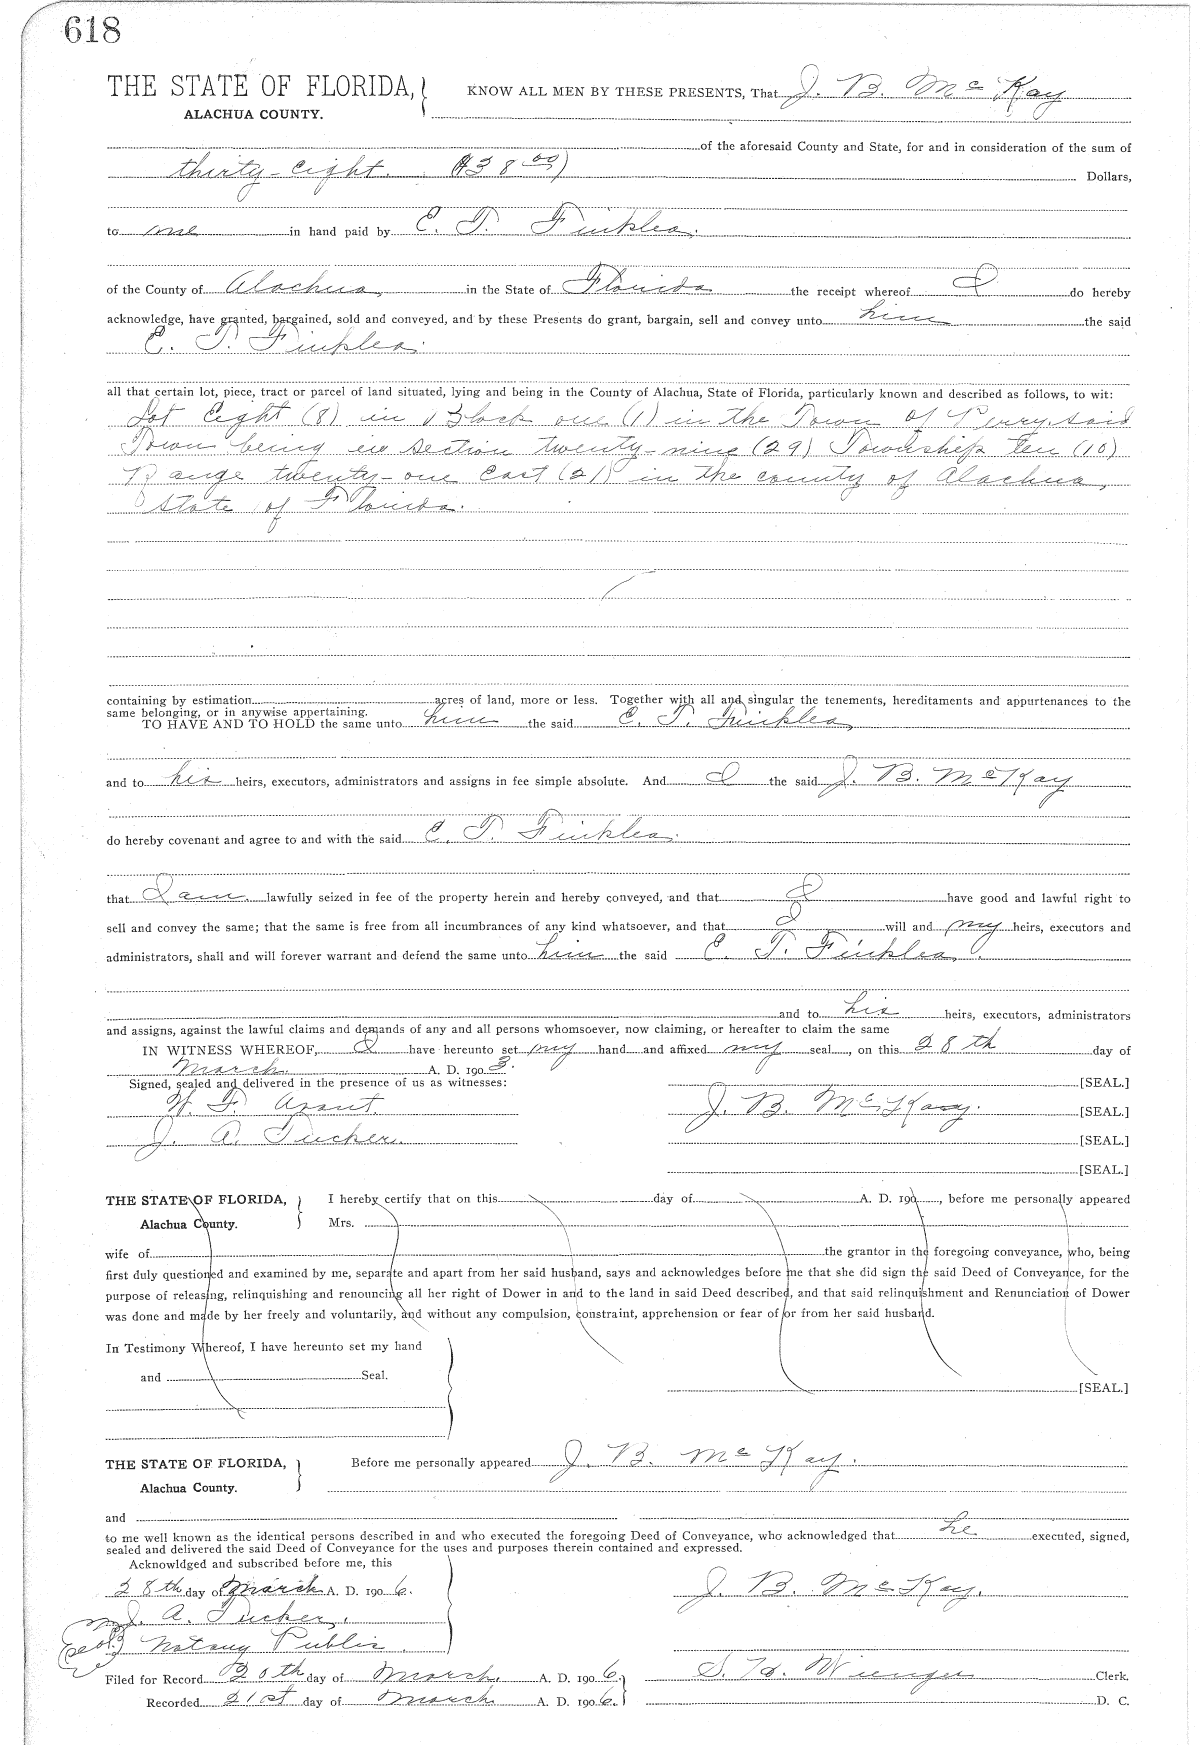 618
THE STATE OF FLORIDA,
ALACHUA COUNTY.
KNOW ALL MEN BY THESE PRESENTS, That J. B. McKay
of the aforesaid County and State, for and in consideration of the sum of
thirty-eight ($38 00) Dollars,
to me in hand paid by E. T. Finklea.
of the County of Alachua, in the State of Florida the receipt whereof I do hereby
acknowledge, have granted, bargained, sold and conveyed, and by these Presents do grant, bargain, sell and convey unto him the said
E. T. Finklea.
all that certain lot, piece, tract or parcel of land situated, lying and being in the County of Alachua, State of Florida, particularly known and described as follows, to wit:
Lot Eight (8) in Block one (1) in the Town of Perry, said
Town being in section twenty-nine (29) Township ten (10)
Range twenty-one East (21) in the county of Alachua,
State of Florida.
containing by estimation acres of land, more or less. Together with all and singular the tenements, hereditaments and appurtenances to the
same belonging, or in anywise appertaining.
TO HAVE AND TO HOLD the same unto him the said E. T. Finklea,
and to his heirs, executors, administrators and assigns in fee simple absolute. And I the said J. B. McKay
do hereby covenant and agree to and with the said E. T. Finklea.
that I am lawfully seized in fee of the property herein and hereby conveyed, and that I have good and lawful right to
sell and convey the same; that the same is free from all incumbrances of any kind whatsoever, and that I will and my heirs, executors and
administrators, shall and will forever warrant and defend the same unto him the said E. T. Finklea,
and to his heirs, executors, administrators
and assigns, against the lawful claims and demands of any and all persons whomsoever, now claiming, or hereafter to claim the same
IN WITNESS WHEREOF, I have hereunto set my hand and affixed my seal, on this 28th day of
March A. D. 1903.
Signed, sealed and delivered in the presence of us as witnesses: [SEAL.]
W. F. Arant. J. B. McKay. [SEAL.]
J. A. Tucker. [SEAL.]
[SEAL.]
THE STATE OF FLORIDA,
Alachua County.
I hereby certify that on this day of A. D. 190 , before me personally appeared
Mrs.
wife of the grantor in the foregoing conveyance, who, being
first duly questioned and examined by me, separate and apart from her said husband, says and acknowledges before me that she did sign the said Deed of Conveyance, for the
purpose of releasing, relinquishing and renouncing all her right of Dower in and to the land in said Deed described, and that said relinquishment and Renunciation of Dower
was done and made by her freely and voluntarily, and without any compulsion, constraint, apprehension or fear of or from her said husband.
In Testimony Whereof, I have hereunto set my hand
and Seal.
[SEAL.]
THE STATE OF FLORIDA,
Alachua County.
Before me personally appeared J. B. McKay.
and
to me well known as the identical persons described in and who executed the foregoing Deed of Conveyance, who acknowledged that he executed, signed,
sealed and delivered the said Deed of Conveyance for the uses and purposes therein contained and expressed.
Acknowldged and subscribed before me, this
28th day of March A. D. 1906. J. B. McKay.
J. A. Tucker,
Notary Public
Filed for Record 20th day of March, A. D. 1906. S. H. Wienges Clerk.
Recorded 21st day of March A. D. 1906. D. C.